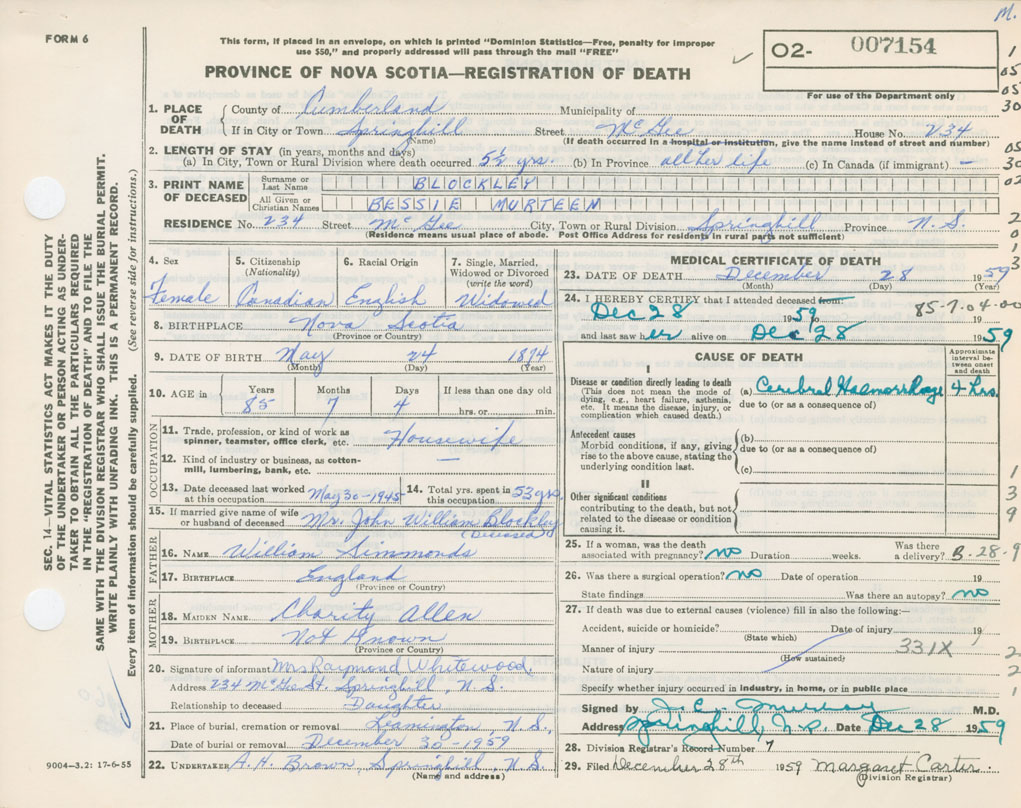 M.
FORM 6
This form, if placed in an envelope, on which is printed "Dominion Statistics—Free, penalty for improper
use $50," and properly addressed will pass through the mail "FREE"
PROVINCE OF NOVA SCOTIA—REGISTRATION OF DEATH
02- 007154
For use of the Department only
SEC. 14—VITAL STATISTICS ACT MAKES IT THE DUTY
OF THE UNDERTAKER OR PERSON ACTING AS UNDER-
TAKER TO OBTAIN ALL THE PARTICULARS REQUIRED
IN THE "REGISTRATION OF DEATH" AND TO FILE THE
SAME WITH THE DIVISION REGISTRAR WHO SHALL ISSUE THE BURIAL PERMIT.
WRITE PLAINLY WITH UNFADING INK. THIS IS A PERMANENT RECORD.
Every item of information should be carefully supplied. (See reverse side for instructions.)
1. PLACE OF DEATH
County of Cumberland Municipality of
If in City or Town Springhill Street McGee House No. 234
(Name) (If death occurred in a hospital or institution, give the name instead of street and number)
2. LENGTH OF STAY (in years, months and days)
(a) In City, Town or Rural Division where death occurred. 5½ yrs. (b) In Province all her life (c) In Canada (if immigrant) —
3. PRINT NAME OF DECEASED
Surname or Last Name BLOCKLEY
All Given or Christian Names BESSIE MURTEEM
RESIDENCE No. 234 Street McGee City, Town or Rural Division Springhill Province N.S.
(Residence means usual place of abode. Post Office Address for residents in rural parts not sufficient)
4. Sex Female
5. Citizenship (Nationality) Canadian
6. Racial Origin English
7. Single, Married, Widowed or Divorced (write the word) Widowed
8. BIRTHPLACE Nova Scotia
(Province or Country)
9. DATE OF BIRTH May 24 1874
(Month) (Day) (Year)
10. AGE in Years 85 Months 7 Days 4 If less than one day old hrs. or min.
OCCUPATION
11. Trade, profession, or kind of work as spinner, teamster, office clerk, etc. Housewife
12. Kind of industry or business, as cotton-mill, lumbering, bank, etc. —
13. Date deceased last worked at this occupation May 30-1945 14. Total yrs. spent in this occupation 53 yrs.
15. If married give name of wife or husband of deceased Mr. John William Blockley
(Deceased)
FATHER
16. NAME William Simmonds
17. BIRTHPLACE England
(Province or Country)
MOTHER
18. MAIDEN NAME Charity Allen
19. BIRTHPLACE Not Known
(Province or Country)
20. Signature of informant Mrs Raymond Whitewood
Address 234 McGee St. Springhill, N.S.
Relationship to deceased Daughter
21. Place of burial, cremation or removal Leamington N.S.
Date of burial or removal December 30-1959
22. UNDERTAKER A.H. Brown, Springhill, N.S.
(Name and address)
9004—3.2: 17-6-55
MEDICAL CERTIFICATE OF DEATH
23. DATE OF DEATH December 28 1959
(Month) (Day) (Year)
24. I HEREBY CERTIFY that I attended deceased from: 85-7-04-00
Dec 28 1959 to 19
and last saw her alive on Dec 28 1959
CAUSE OF DEATH
Approximate interval between onset and death
I
Disease or condition directly leading to death
(This does not mean the mode of dying, e.g., heart failure, asthenia, etc. It means the disease, injury, or complication which caused death.)
(a) Cerebral Haemorrhage 4 hrs.
due to (or as a consequence of)
Antecedent causes
Morbid conditions, if any, giving rise to the above cause, stating the underlying condition last.
(b)
due to (or as a consequence of)
(c)
II
Other significant conditions
contributing to the death, but not related to the disease or condition causing it.
25. If a woman, was the death associated with pregnancy? no Duration weeks. Was there a delivery? B-28-9
26. Was there a surgical operation? no Date of operation 19
State findings Was there an autopsy? no
27. If death was due to external causes (violence) fill in also the following:—
Accident, suicide or homicide? Date of injury 19
(State which)
Manner of injury 331X
(How sustained)
Nature of injury
Specify whether injury occurred in industry, in home, or in public place
Signed by J. C. Murray M.D.
Address Springhill, N.S. Date Dec 28 1959
28. Division Registrar's Record Number 7
29. Filed December 28th 1959 Margaret Carter
(Division Registrar)